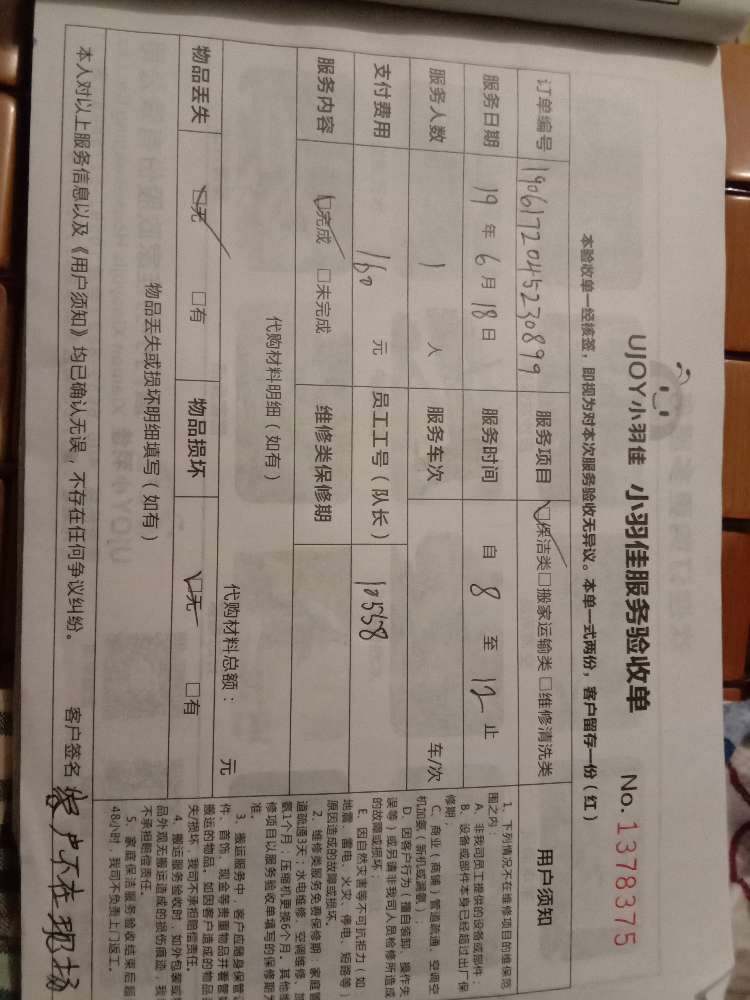 UJOY小羽佳 小羽佳服务验收单 No. 1378375
本验收单一经核签，即视为对本次服务验收无异议。本单一式两份，客户留存一份（红）
订单编号 190617204523089９ 服务项目 ☑保洁类□搬家运输类□维修清洗类 用户须知
服务日期 19 年 6 月 18 日 服务时间 自 8 至 12 止
服务人数 1 人 服务车次 车/次
支付费用 160 元 员工工号（队长） 10558
服务内容 ☑完成 □未完成 维修类保修期
代购材料明细（如有）
代购材料总额： 元
物品丢失 ☑无 □有 物品损坏 ☑无 □有
物品丢失或损坏明细填写（如有）
本人对以上服务信息以及《用户须知》均已确认无误，不存在任何争议纠纷。 客户签名 客户不在现场
1、下列情况不在维修项目的维保范
围之内：
A、非我司员工提供的设备或部件；
B、设备或部件本身已经超过出厂保
修期；
C、商业（商铺）管道疏通，空调空
机加氨（新机或漏氨）；
D、因客户行为（擅自装卸、操作失
误等）或另请非我司人员检修所造成
的故障或损坏；
E、因自然灾害等不可抗拒力（如
地震、雷电、火灾、停电、短路等）
原因造成的故障或损坏。
2、维修类服务免费保修期：家庭管
道疏通3天；水电维修、空调维修、加
氨1个月；压缩机更换6个月。其他维
修项目以服务验收单填写的保修期为
准。
3、搬运服务中，客户应随身保管
件、首饰、现金等贵重物品并看管
搬运的物品，如因客户造成的物品
失/损坏，我司不承担赔偿责任。
4、搬运服务验收时，如外包装或
品外观无搬运造成的损伤痕迹，我
不承担赔偿责任。
5、家庭保洁服务验收结束后超
48小时，我司不负责上门返工。